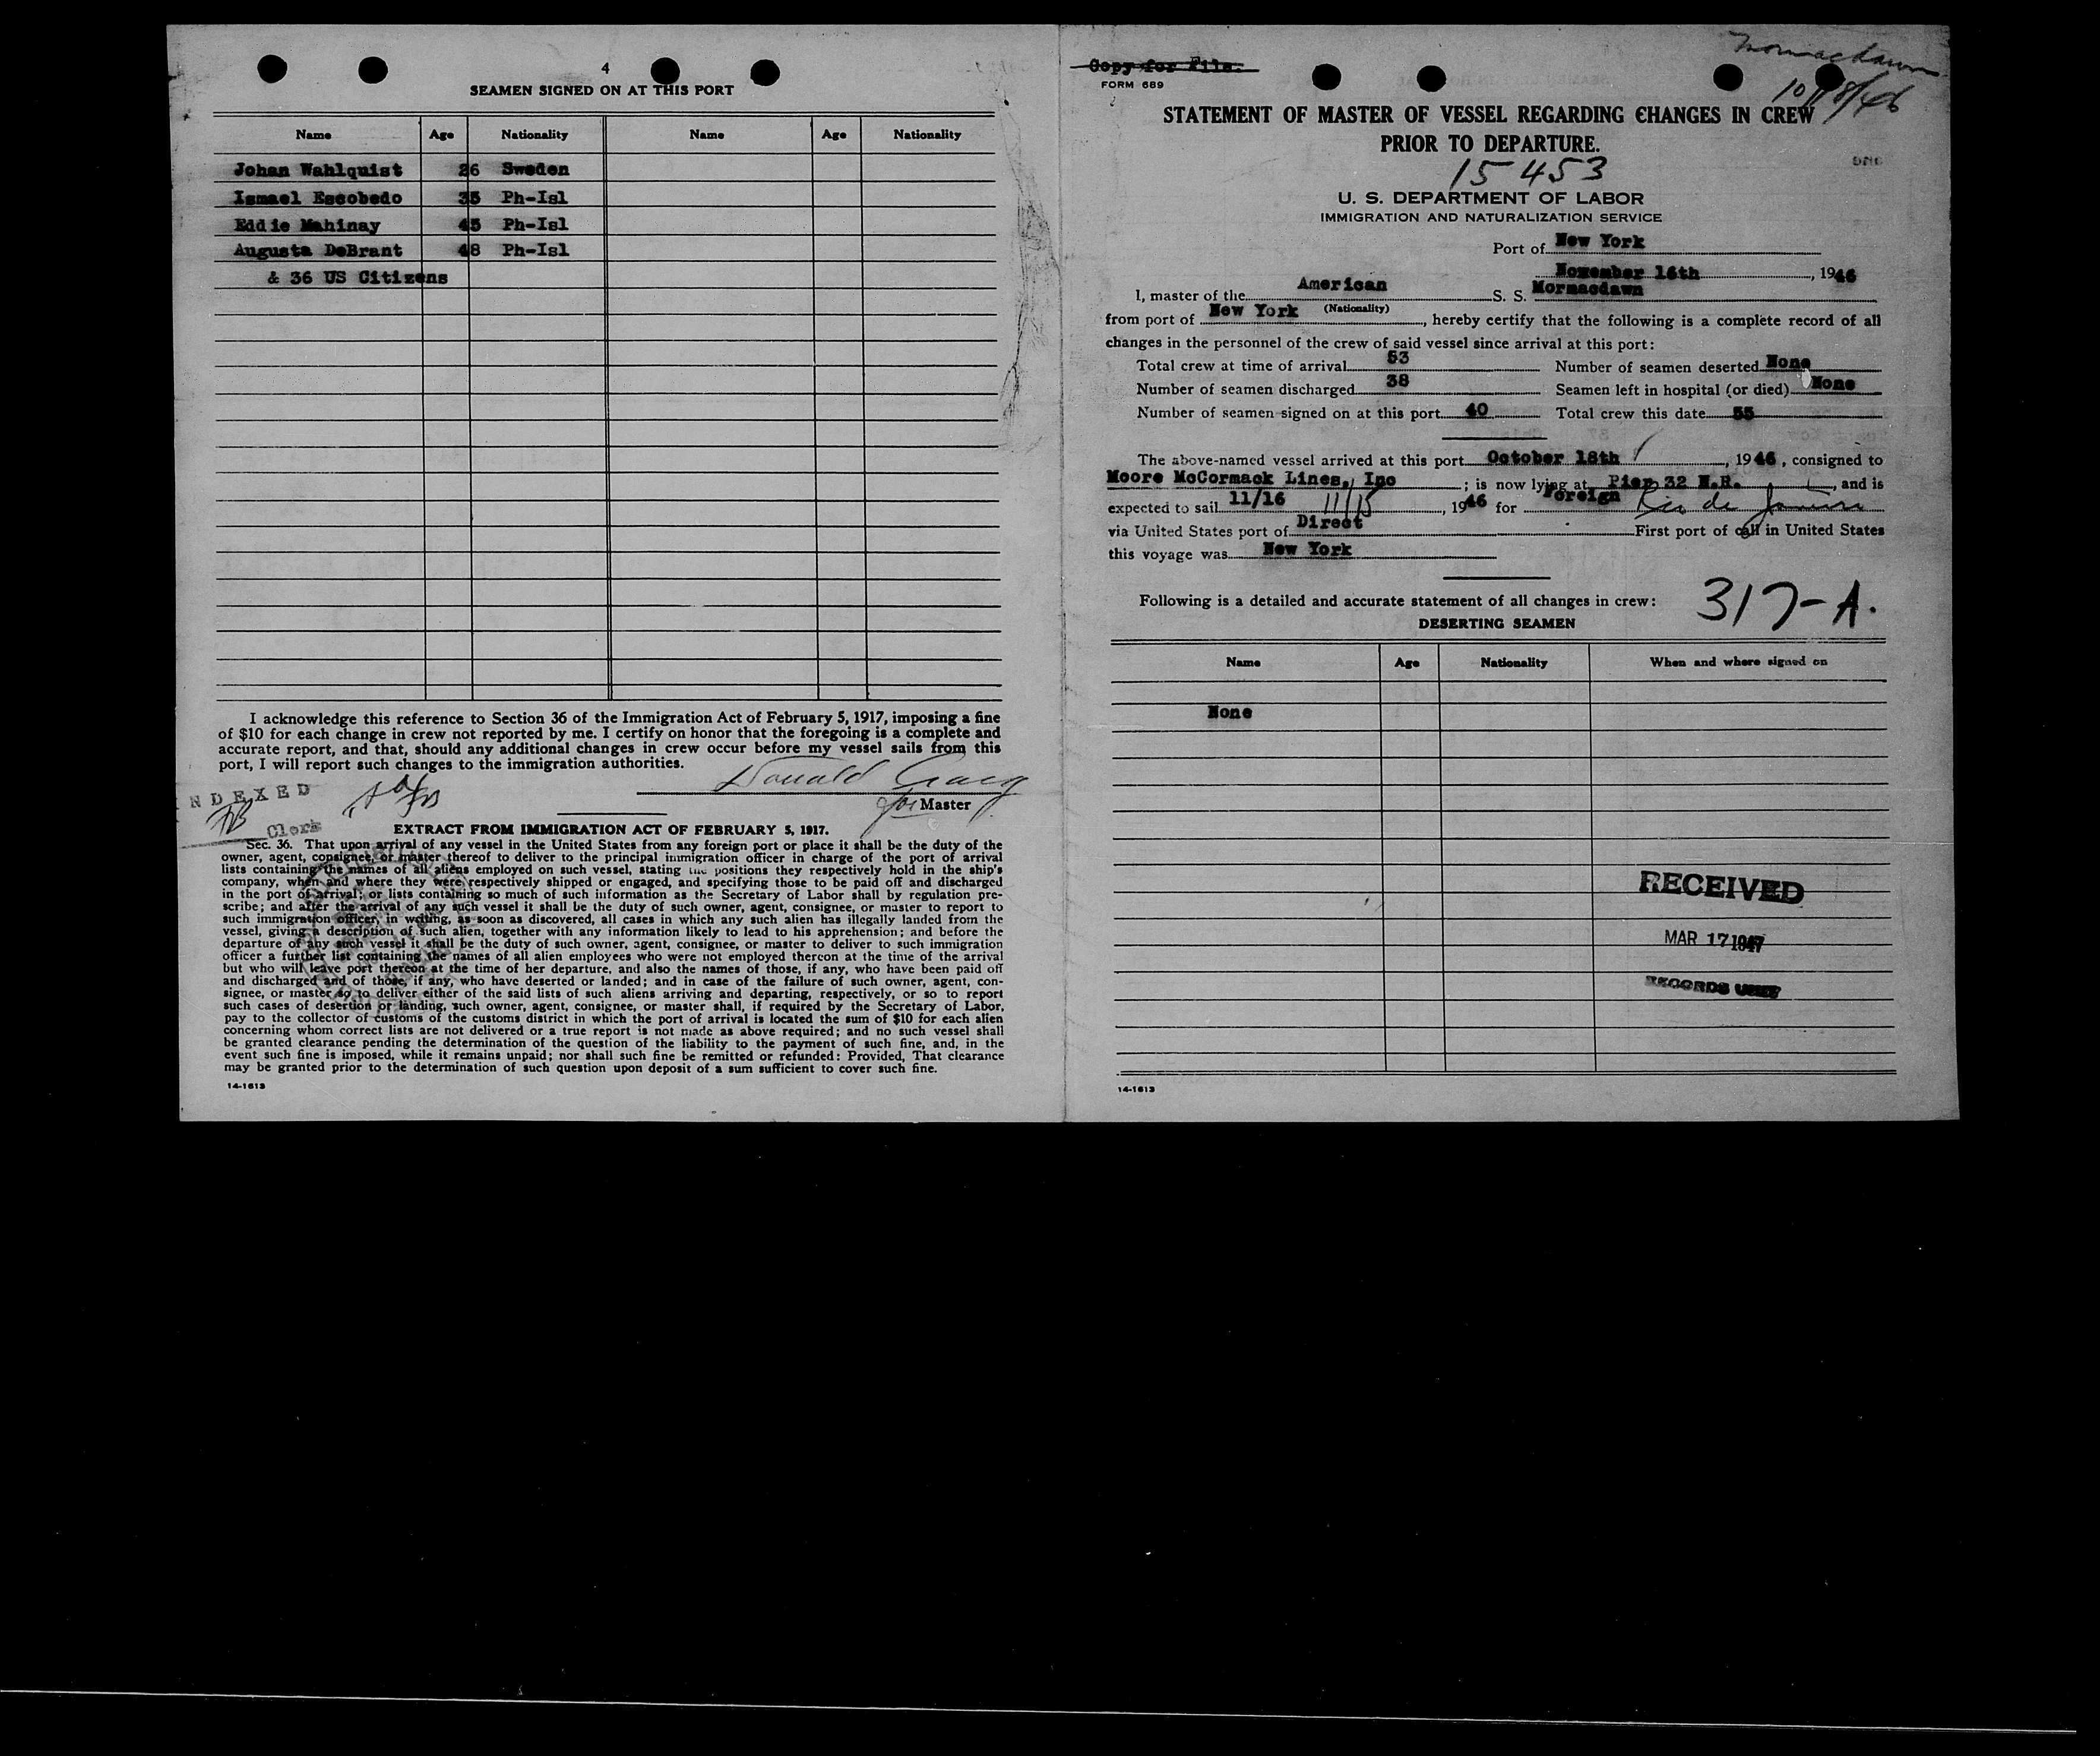 4
SEAMEN SIGNED ON AT THIS PORT
Name Age Nationality Name Age Nationality
Johan Wahlquist 26 Sweden
Ismael Escobedo 35 Ph-Isl
Eddie Mahinay 45 Ph-Isl
Augusta DeBrant 48 Ph-Isl
& 36 US Citizens
I acknowledge this reference to Section 36 of the Immigration Act of February 5, 1917, imposing a fine
of $10 for each change in crew not reported by me. I certify on honor that the foregoing is a complete and
accurate report, and that, should any additional changes in crew occur before my vessel sails from this
port, I will report such changes to the immigration authorities.
Donald
NDEXED
for Master
Clerk
EXTRACT FROM IMMIGRATION ACT OF FEBRUARY 5, 1917.
Sec. 36. That upon arrival of any vessel in the United States from any foreign port or place it shall be the duty of the
owner, agent, consignee, or master thereof to deliver to the principal immigration officer in charge of the port of arrival
lists containing the names of all aliens employed on such vessel, stating the positions they respectively hold in the ship's
company, when and where they were respectively shipped or engaged, and specifying those to be paid off and discharged
in the port of arrival; or lists containing so much of such information as the Secretary of Labor shall by regulation pre-
scribe; and after the arrival of any such vessel it shall be the duty of such owner, agent, consignee, or master to report to
such immigration officer, in writing, as soon as discovered, all cases in which any such alien has illegally landed from the
vessel, giving a description of such alien, together with any information likely to lead to his apprehension; and before the
departure of any such vessel it shall be the duty of such owner, agent, consignee, or master to deliver to such immigration
officer a further list containing the names of all alien employees who were not employed thereon at the time of the arrival
but who will leave port thereon at the time of her departure, and also the names of those, if any, who have been paid off
and discharged and of those, if any, who have deserted or landed; and in case of the failure of such owner, agent, con-
signee, or master so to deliver either of the said lists of such aliens arriving and departing, respectively, or so to report
such cases of desertion or landing, such owner, agent, consignee, or master shall, if required by the Secretary of Labor,
pay to the collector of customs of the customs district in which the port of arrival is located the sum of $10 for each alien
concerning whom correct lists are not delivered or a true report is not made as above required; and no such vessel shall
be granted clearance pending the determination of the question of the liability to the payment of such fine, and, in the
event such fine is imposed, while it remains unpaid; nor shall such fine be remitted or refunded: Provided, That clearance
may be granted prior to the determination of such question upon deposit of a sum sufficient to cover such fine.
14-1613
Mormacdawn
10/18/46
Copy for File.
FORM 689
STATEMENT OF MASTER OF VESSEL REGARDING CHANGES IN CREW
PRIOR TO DEPARTURE.
15453
U. S. DEPARTMENT OF LABOR
IMMIGRATION AND NATURALIZATION SERVICE
Port of New York
November 16th, 1946
I, master of the American S. S. Mormacdawn
(Nationality)
from port of New York, hereby certify that the following is a complete record of all
changes in the personnel of the crew of said vessel since arrival at this port:
Total crew at time of arrival 53 Number of seamen deserted None
Number of seamen discharged 38 Seamen left in hospital (or died) None
Number of seamen signed on at this port 40 Total crew this date 55
The above-named vessel arrived at this port October 18th, 1946, consigned to
Moore McCormack Lines, Inc; is now lying at Pier 32 N.R., and is
expected to sail 11/16 11/15, 1946 for Foreign Rio de Janeiro
via United States port of Direct First port of call in United States
this voyage was New York
Following is a detailed and accurate statement of all changes in crew: 317-A.
DESERTING SEAMEN
Name Age Nationality When and where signed on
None
RECEIVED
MAR 17 1947
RECORDS UNIT
14-1613